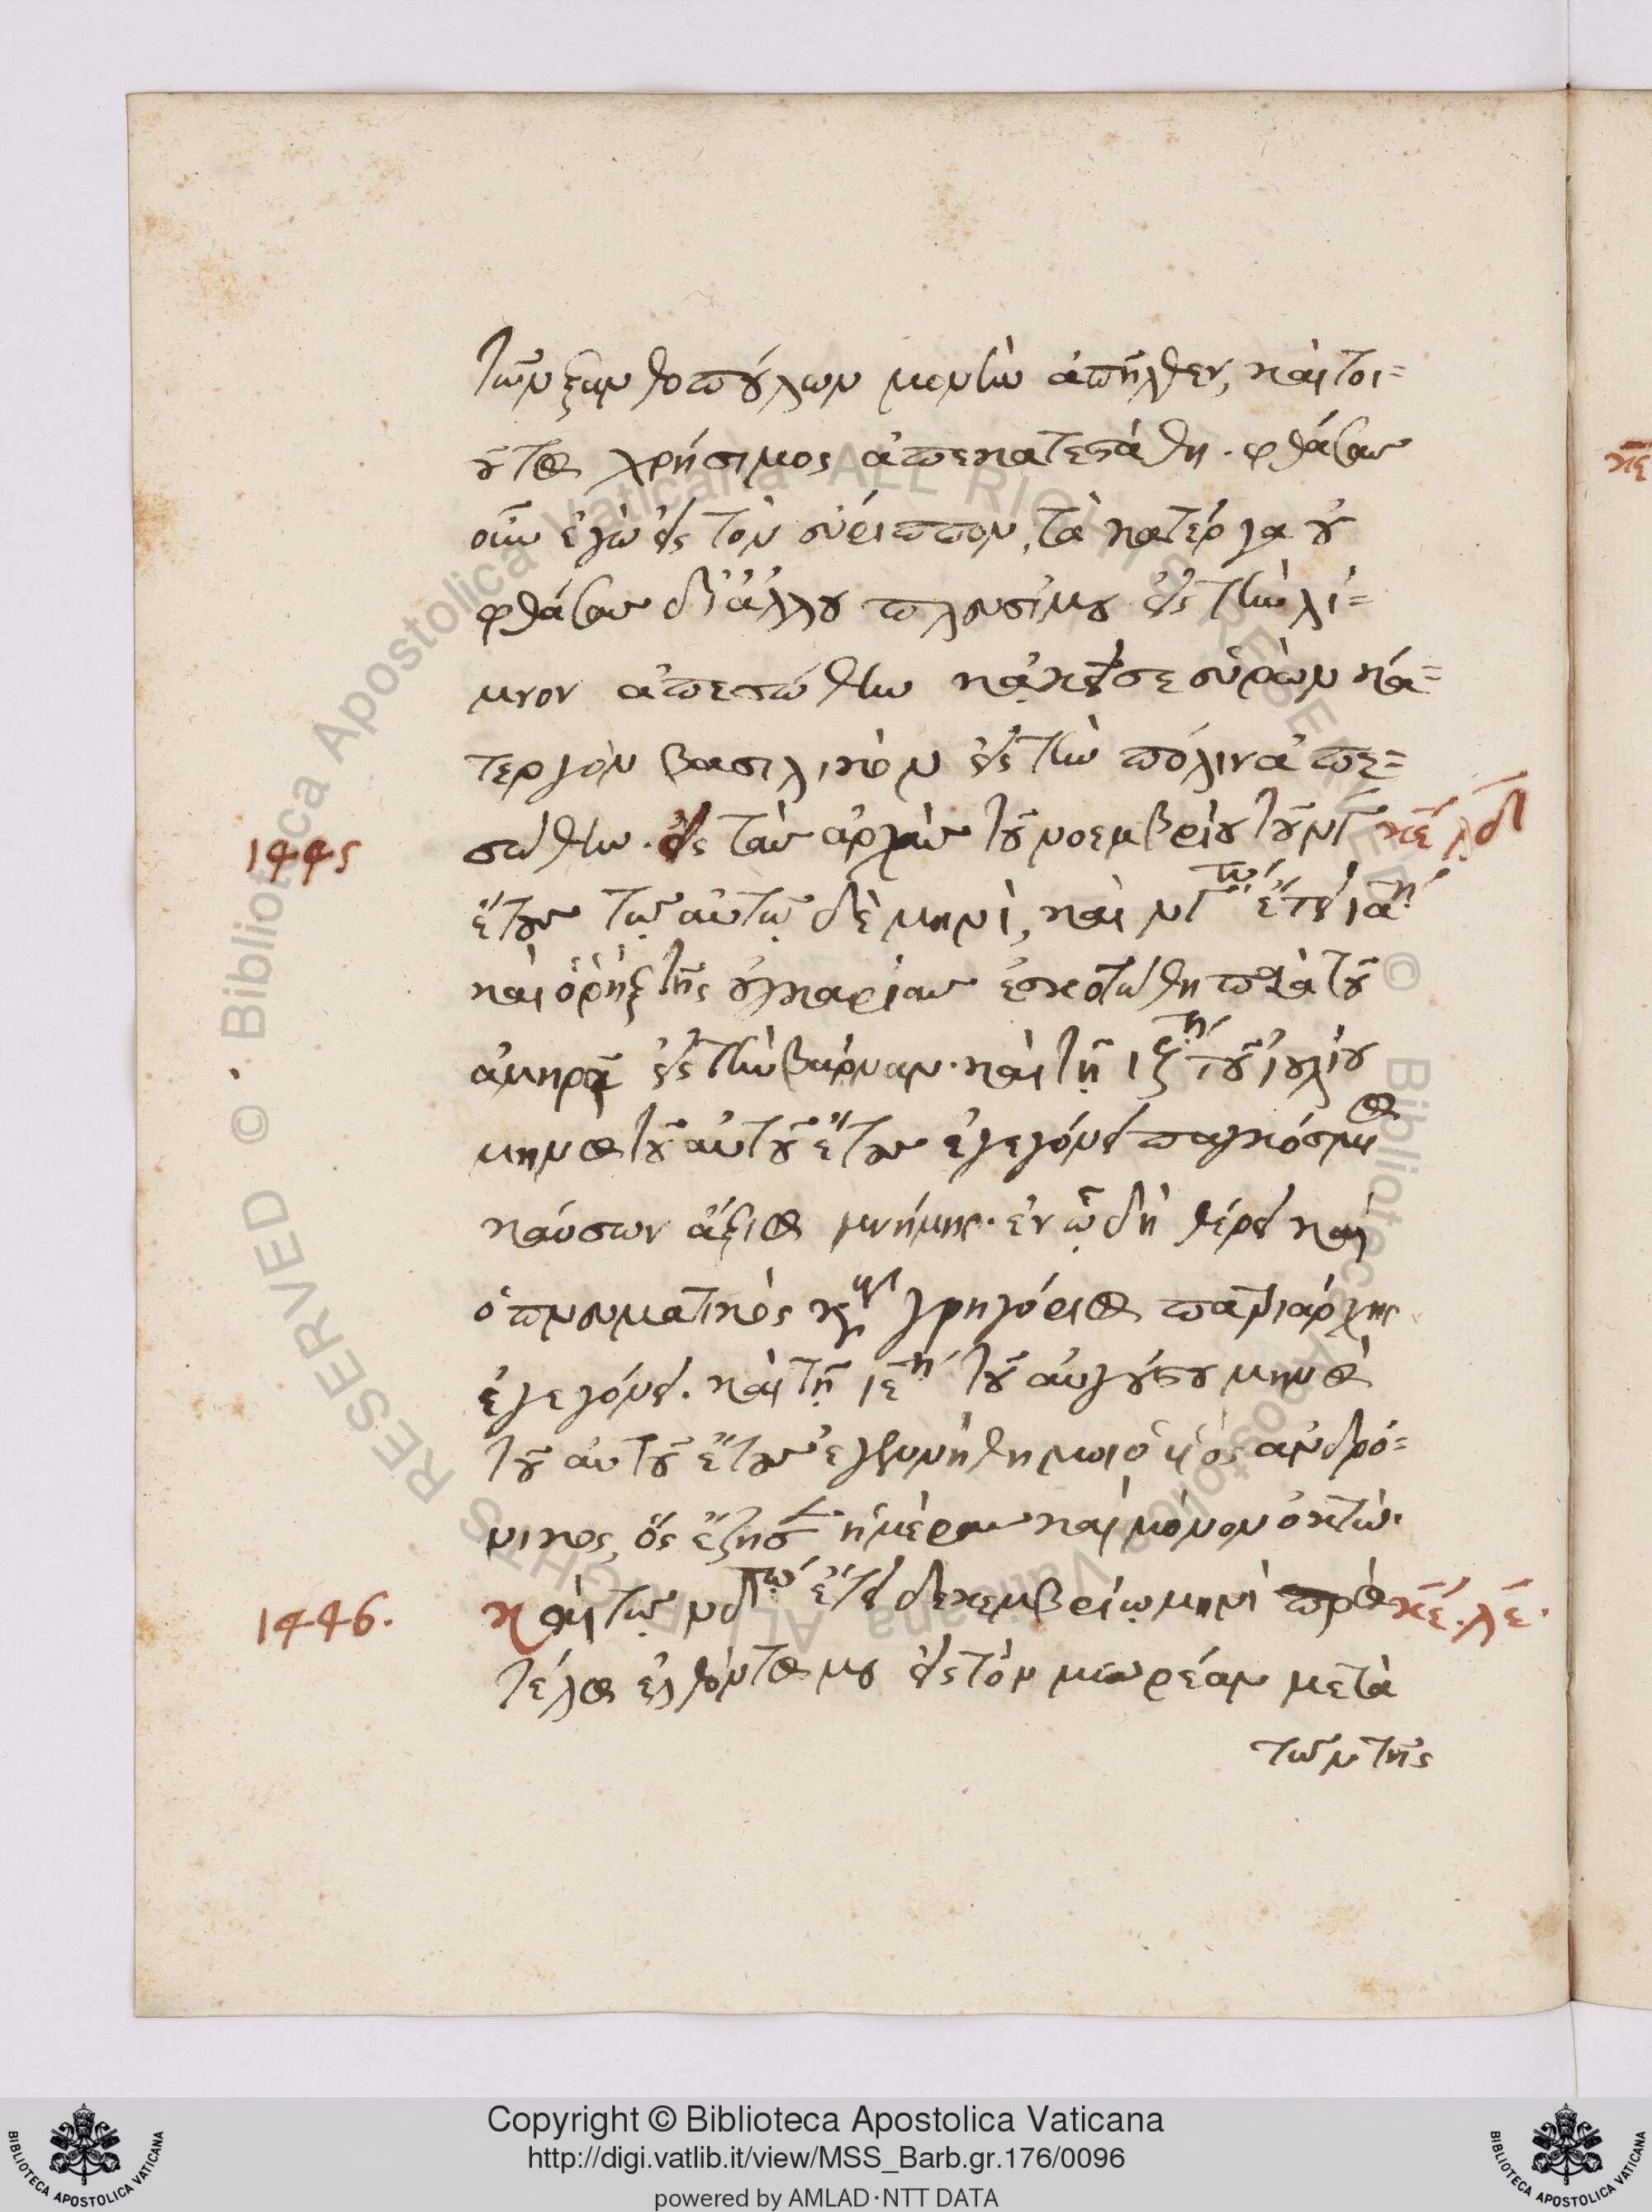 τῶν ξανθοπούλων μονὴν ἀπῆλθεν, καὶ τοι=
οῦτος χρήσιμος ἀπεκατεστάθη. φθάσας
οὖν ἐγὼ εἰς τὸν εὔριππον, τὰ κατέργα οὐ
φθάσας δι' ἄλλου πλευσίμου εἰς τὴν λῆ=
μνον ἀπεσώθην κἀκεῖσε εὑρὼν κά=
τεργον βασιλικὸν εἰς τὴν πόλιν ἀπε=
1445 σώθην. εἰς τὰς ἀρχὰς τοῦ νοεμβρίου τοῦ νγ κε. λδ
ἔτους τῷ αὐτῷ δὲ μηνὶ, καὶ νγῷ ἔτει ιαῃ
καὶ ὁ ῥὴξ τῆς οὑγκαρίας ἐσκοτώθη παρὰ τοῦ
ἀμηρᾶ εἰς τὴν βάρναν. καὶ τῇ ιζῃ τοῦ ἰουλίου
μηνὸς τοῦ αὐτοῦ ἔτους ἐγεγόνει παγκόσμιος
καύσων ἄξιος μνήμης. ἐν ᾧ δὴ θέρει καὶ
ὁ πνευματικὸς κῦρ γρηγόριος πατριάρχης
ἐγεγόνει. καὶ τῇ ιεῃ τοῦ αὐγούστου μηνὸς
τοῦ αὐτοῦ ἔτους ἐγεννήθη μοι ὁ υἱὸς ἀνδρό=
νικος, ὃς ἔζησεν ἡμέρας καὶ μόνον ὀκτώ.
1446. καὶ τῷ νδῷ ἔτει δεκεμβρίῳ μηνὶ πρὸς κε. λε.
τέλος ἐλθόντος μου εἰς τὸν μωρέαν μετὰ
τῶν τῆς
κε
Copyright © Biblioteca Apostolica Vaticana
http://digi.vatlib.it/view/MSS_Barb.gr.176/0096
powered by AMLAD·NTT DATA
BIBLIOTECA APOSTOLICA VATICANA
BIBLIOTECA APOSTOLICA VATICANA